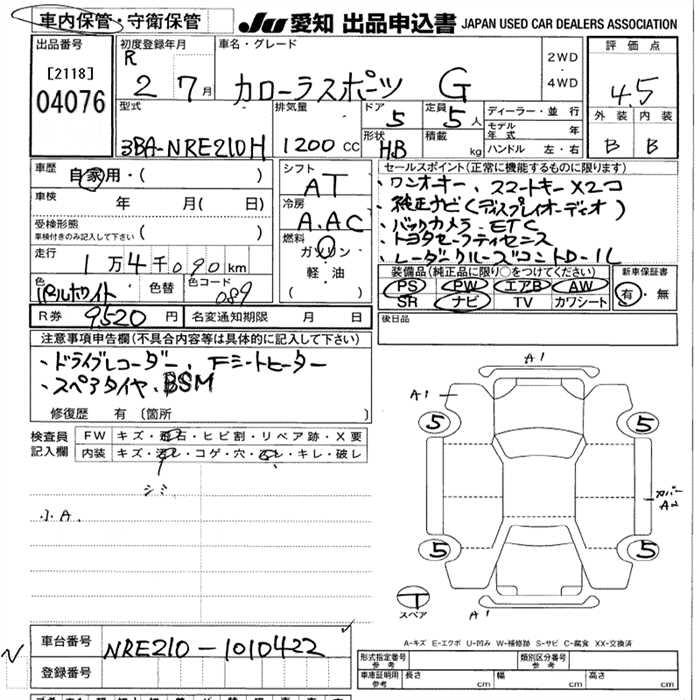 車内保管・守衛保管
JU 愛知 出品申込書 JAPAN USED CAR DEALERS ASSOCIATION
出品番号
[2118]
04076
初度登録年月
R 2 7月
車名・グレード
カローラスポーツ G
2WD
・
4WD
評価点
4.5
外装 内装
B B
型式
3BA-NRE210H
排気量
1200 cc
ドア
5
定員
5人
形状
HB
積載
kg
ディーラー・並行
モデル年式 年
ハンドル 左・右
車歴
自家用・( )
車検
年 月( 日)
受検形態
車検付きのみ記入して下さい ( )
走行
1万4千090km
色
パールホワイト
色替
色コード
089
シフト
AT
冷房
A.AC
燃料
ガソリン
軽・油
( )
セールスポイント(正常に機能するものに限ります)
・ワンオーナー、スマートキーX2コ
・純正ナビ(ディスプレイオーディオ)
・バックカメラ・ETC
・トヨタセーフティセンス
・レーダークルーズコントロール
装備品(純正品に限り○をつけてください)
PS PW エアB AW
SR ナビ TV カワシート
新車保証書
有・無
R券 9520円
名変通知期限 月 日
後日品
注意事項申告欄(不具合内容等は具体的に記入して下さい)
・ドライブレコーダー、シートヒーター
・スペアタイヤ、BSM
修復歴 有〔箇所 〕
検査員記入欄
FW キズ・飛石・ヒビ割・リペア跡・X要
内装 キズ・汚レ・コゲ・穴・スレ・キレ・破レ
シミ
小A
A1
A1
5 5
カバー
A2
5 5
T
スペア
A1
A-キズ E-エクボ U-凹み W-補修跡 S-サビ C-腐食 XX-交換済
車台番号
NRE210-1010422
登録番号
形式指定番号 参考
類別区分番号 参考
車庫証明用 参考
長さ cm 幅 cm 高さ cm